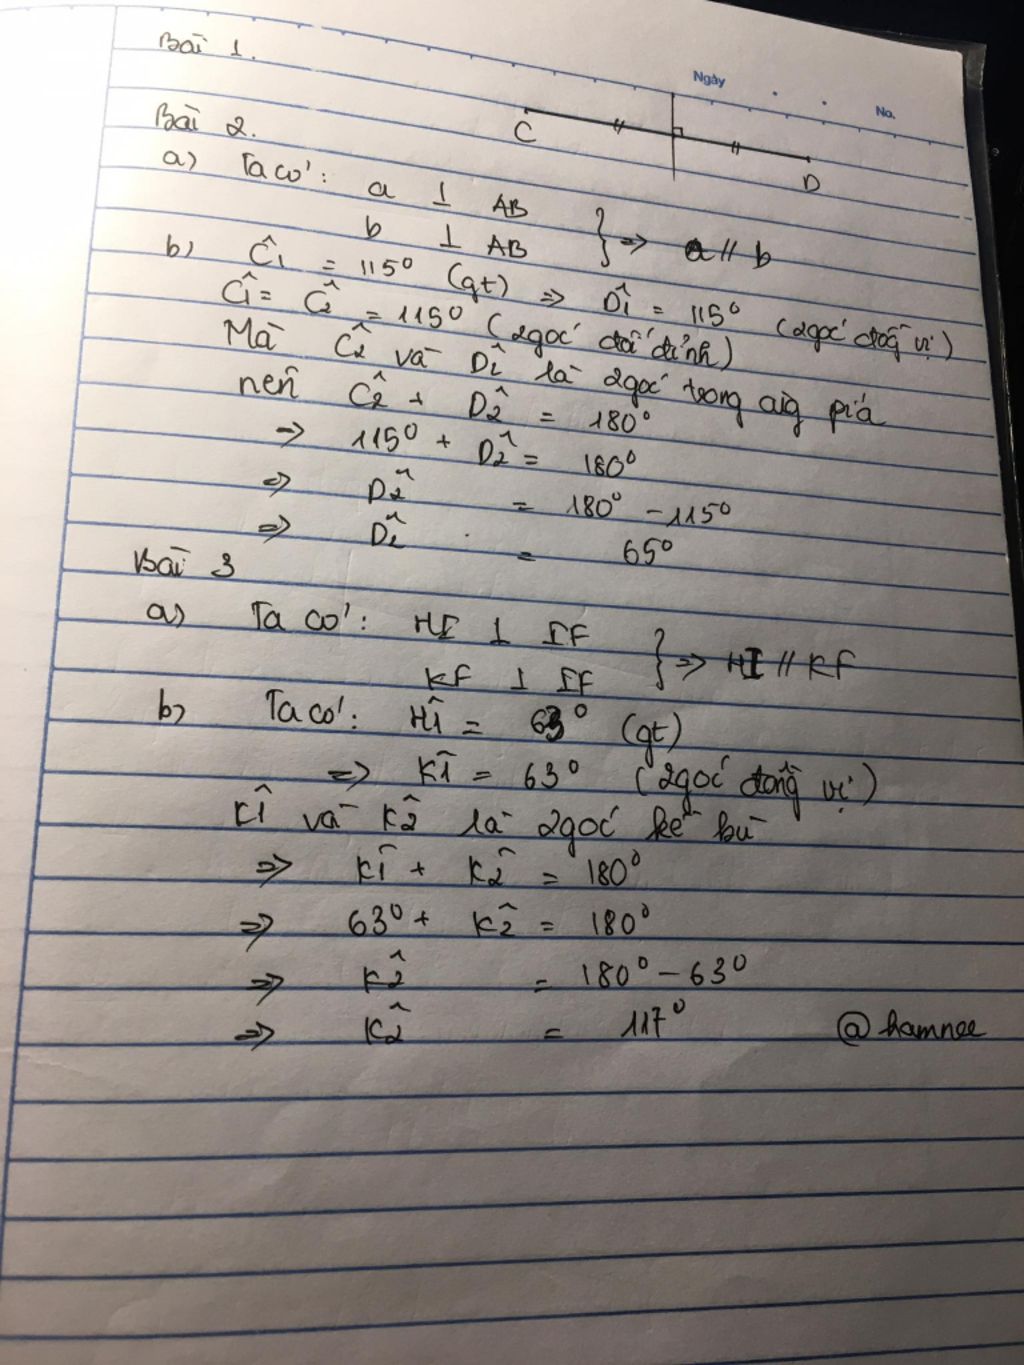 Bài 1.
Ngày
No.
C
D
Bài 2.
a) Ta có: a ⊥ AB
b ⊥ AB } => a // b
b) Ĉ1 = 115° (gt) => D̂1 = 115° (2 góc đồng vị)
Ĉ1 = Ĉ2 = 115° (2 góc đối đỉnh)
Mà Ĉ2 và D̂2 là 2 góc trong cùg phía
nên Ĉ2 + D̂2 = 180°
=> 115° + D̂2 = 180°
=> D̂2 = 180° - 115°
=> D̂2 = 65°
Bài 3
a) Ta có: HI ⊥ IF
KF ⊥ IF } => HI // KF
b) Ta có: Ĥ1 = 63° (gt)
=> K̂1 = 63° (2 góc đồng vị)
K̂1 và K̂2 là 2 góc kề bù
=> K̂1 + K̂2 = 180°
=> 63° + K̂2 = 180°
=> K̂2 = 180° - 63°
=> K̂2 = 117°
@hamnee